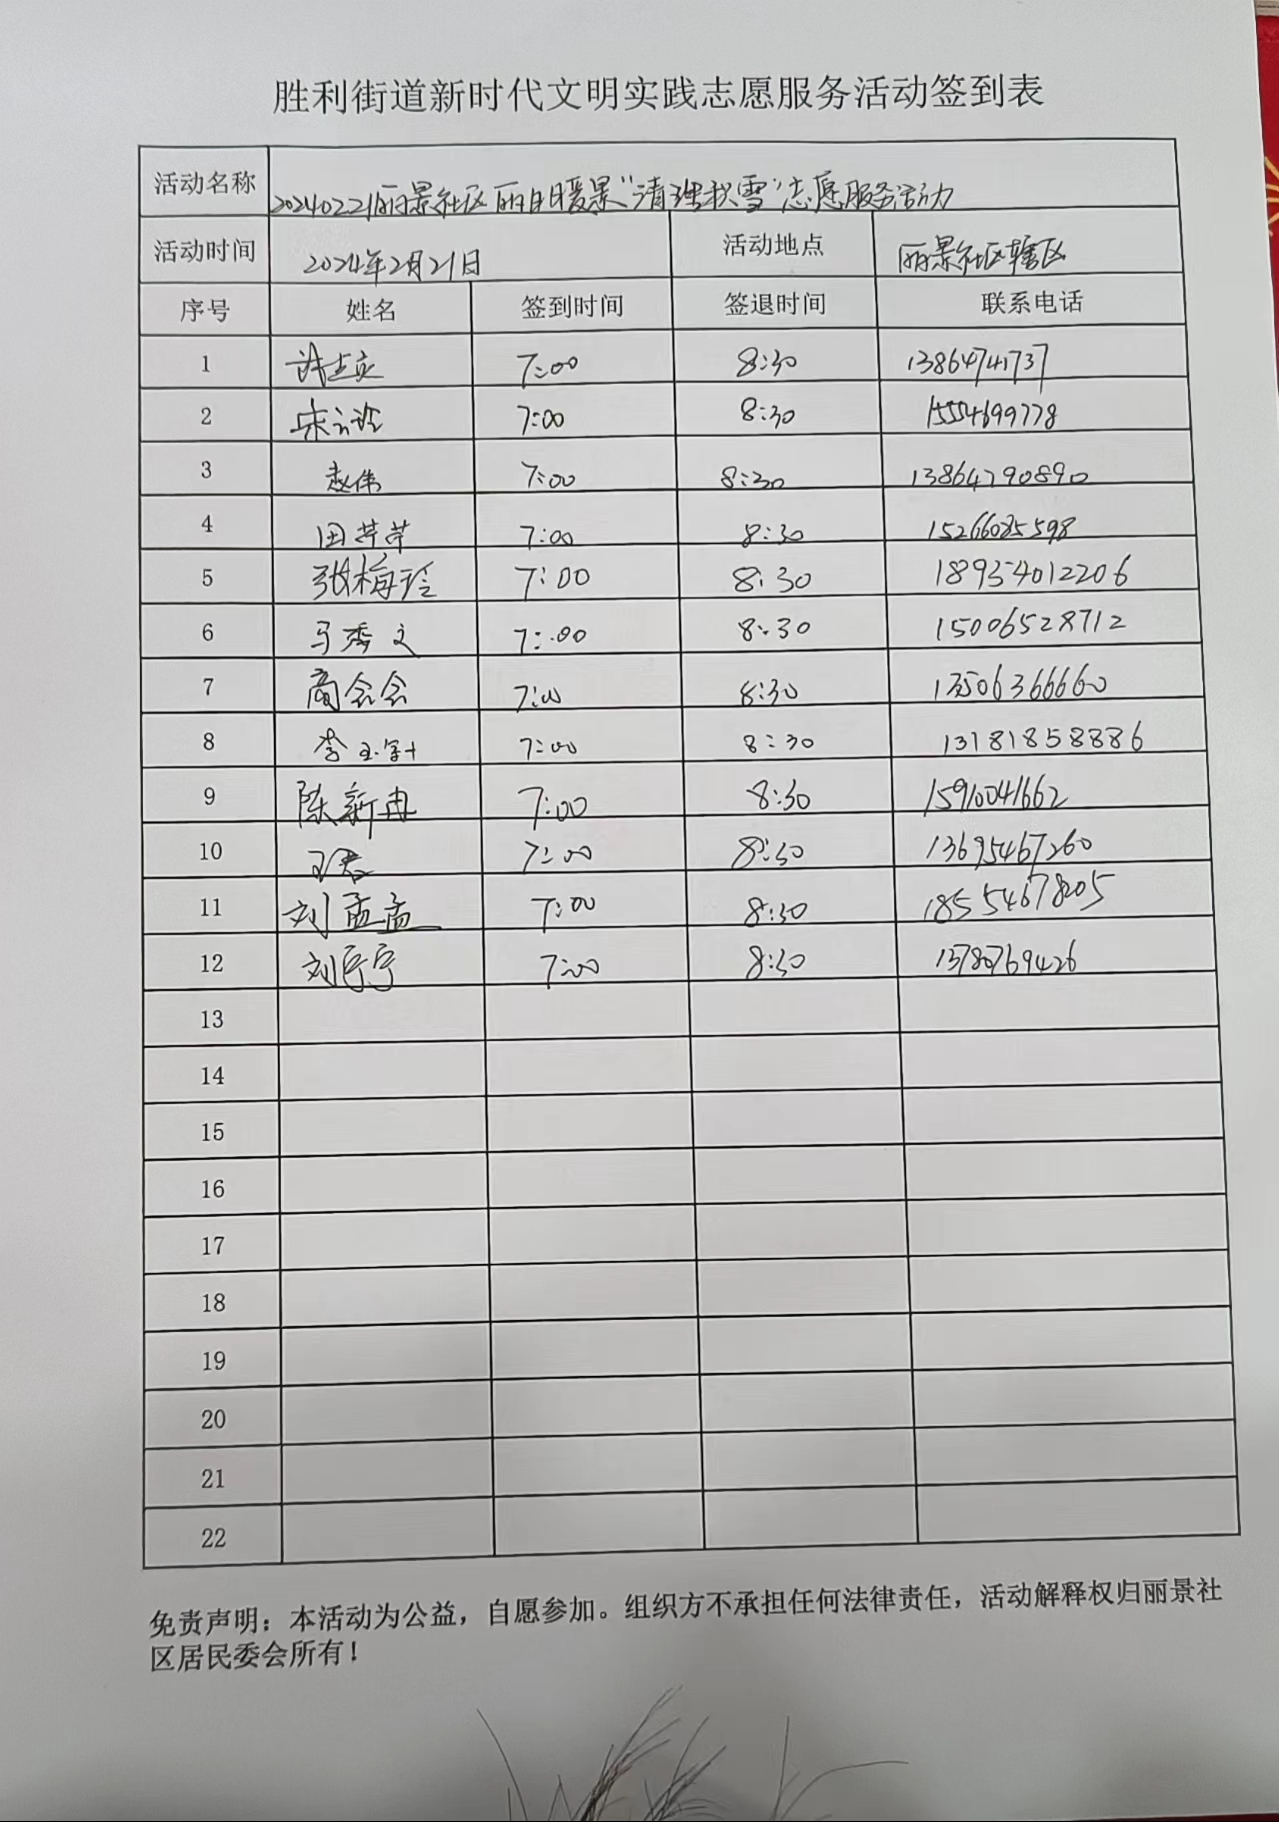 胜利街道新时代文明实践志愿服务活动签到表
活动名称 20240221丽景社区丽日暖景“清理积雪”志愿服务活动
活动时间 2024年2月21日 活动地点 丽景社区辖区
序号 姓名 签到时间 签退时间 联系电话
1 7:00 8:30 13864741737
2 7:00 8:30 15554699778
3 赵伟 7:00 8:30 13864790890
4 田芹芹 7:00 8:30 15266025598
5 张梅玲 7:00 8:30 18954012206
6 马秀文 7:00 8:30 15006528712
7 商会会 7:00 8:30 13506366660
8 7:00 8:30 13181858886
9 陈新冉 7:00 8:30 15910041662
10 7:00 8:30 13695467260
11 刘孟孟 7:00 8:30 18554678205
12 刘宁宁 7:00 8:30 13780769426
13
14
15
16
17
18
19
20
21
22
免责声明：本活动为公益，自愿参加。组织方不承担任何法律责任，活动解释权归丽景社
区居民委会所有！